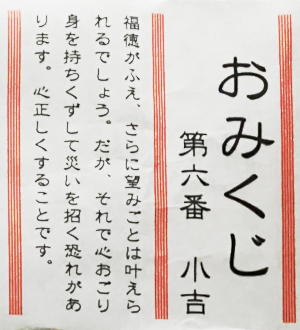 おみくじ
第六番 小吉
福徳がふえ、さらに望みごとは叶えら
れるでしょう。だが、それで心おごり
身を持ちくずして災いを招く恐れがあ
ります。心正しくすることです。